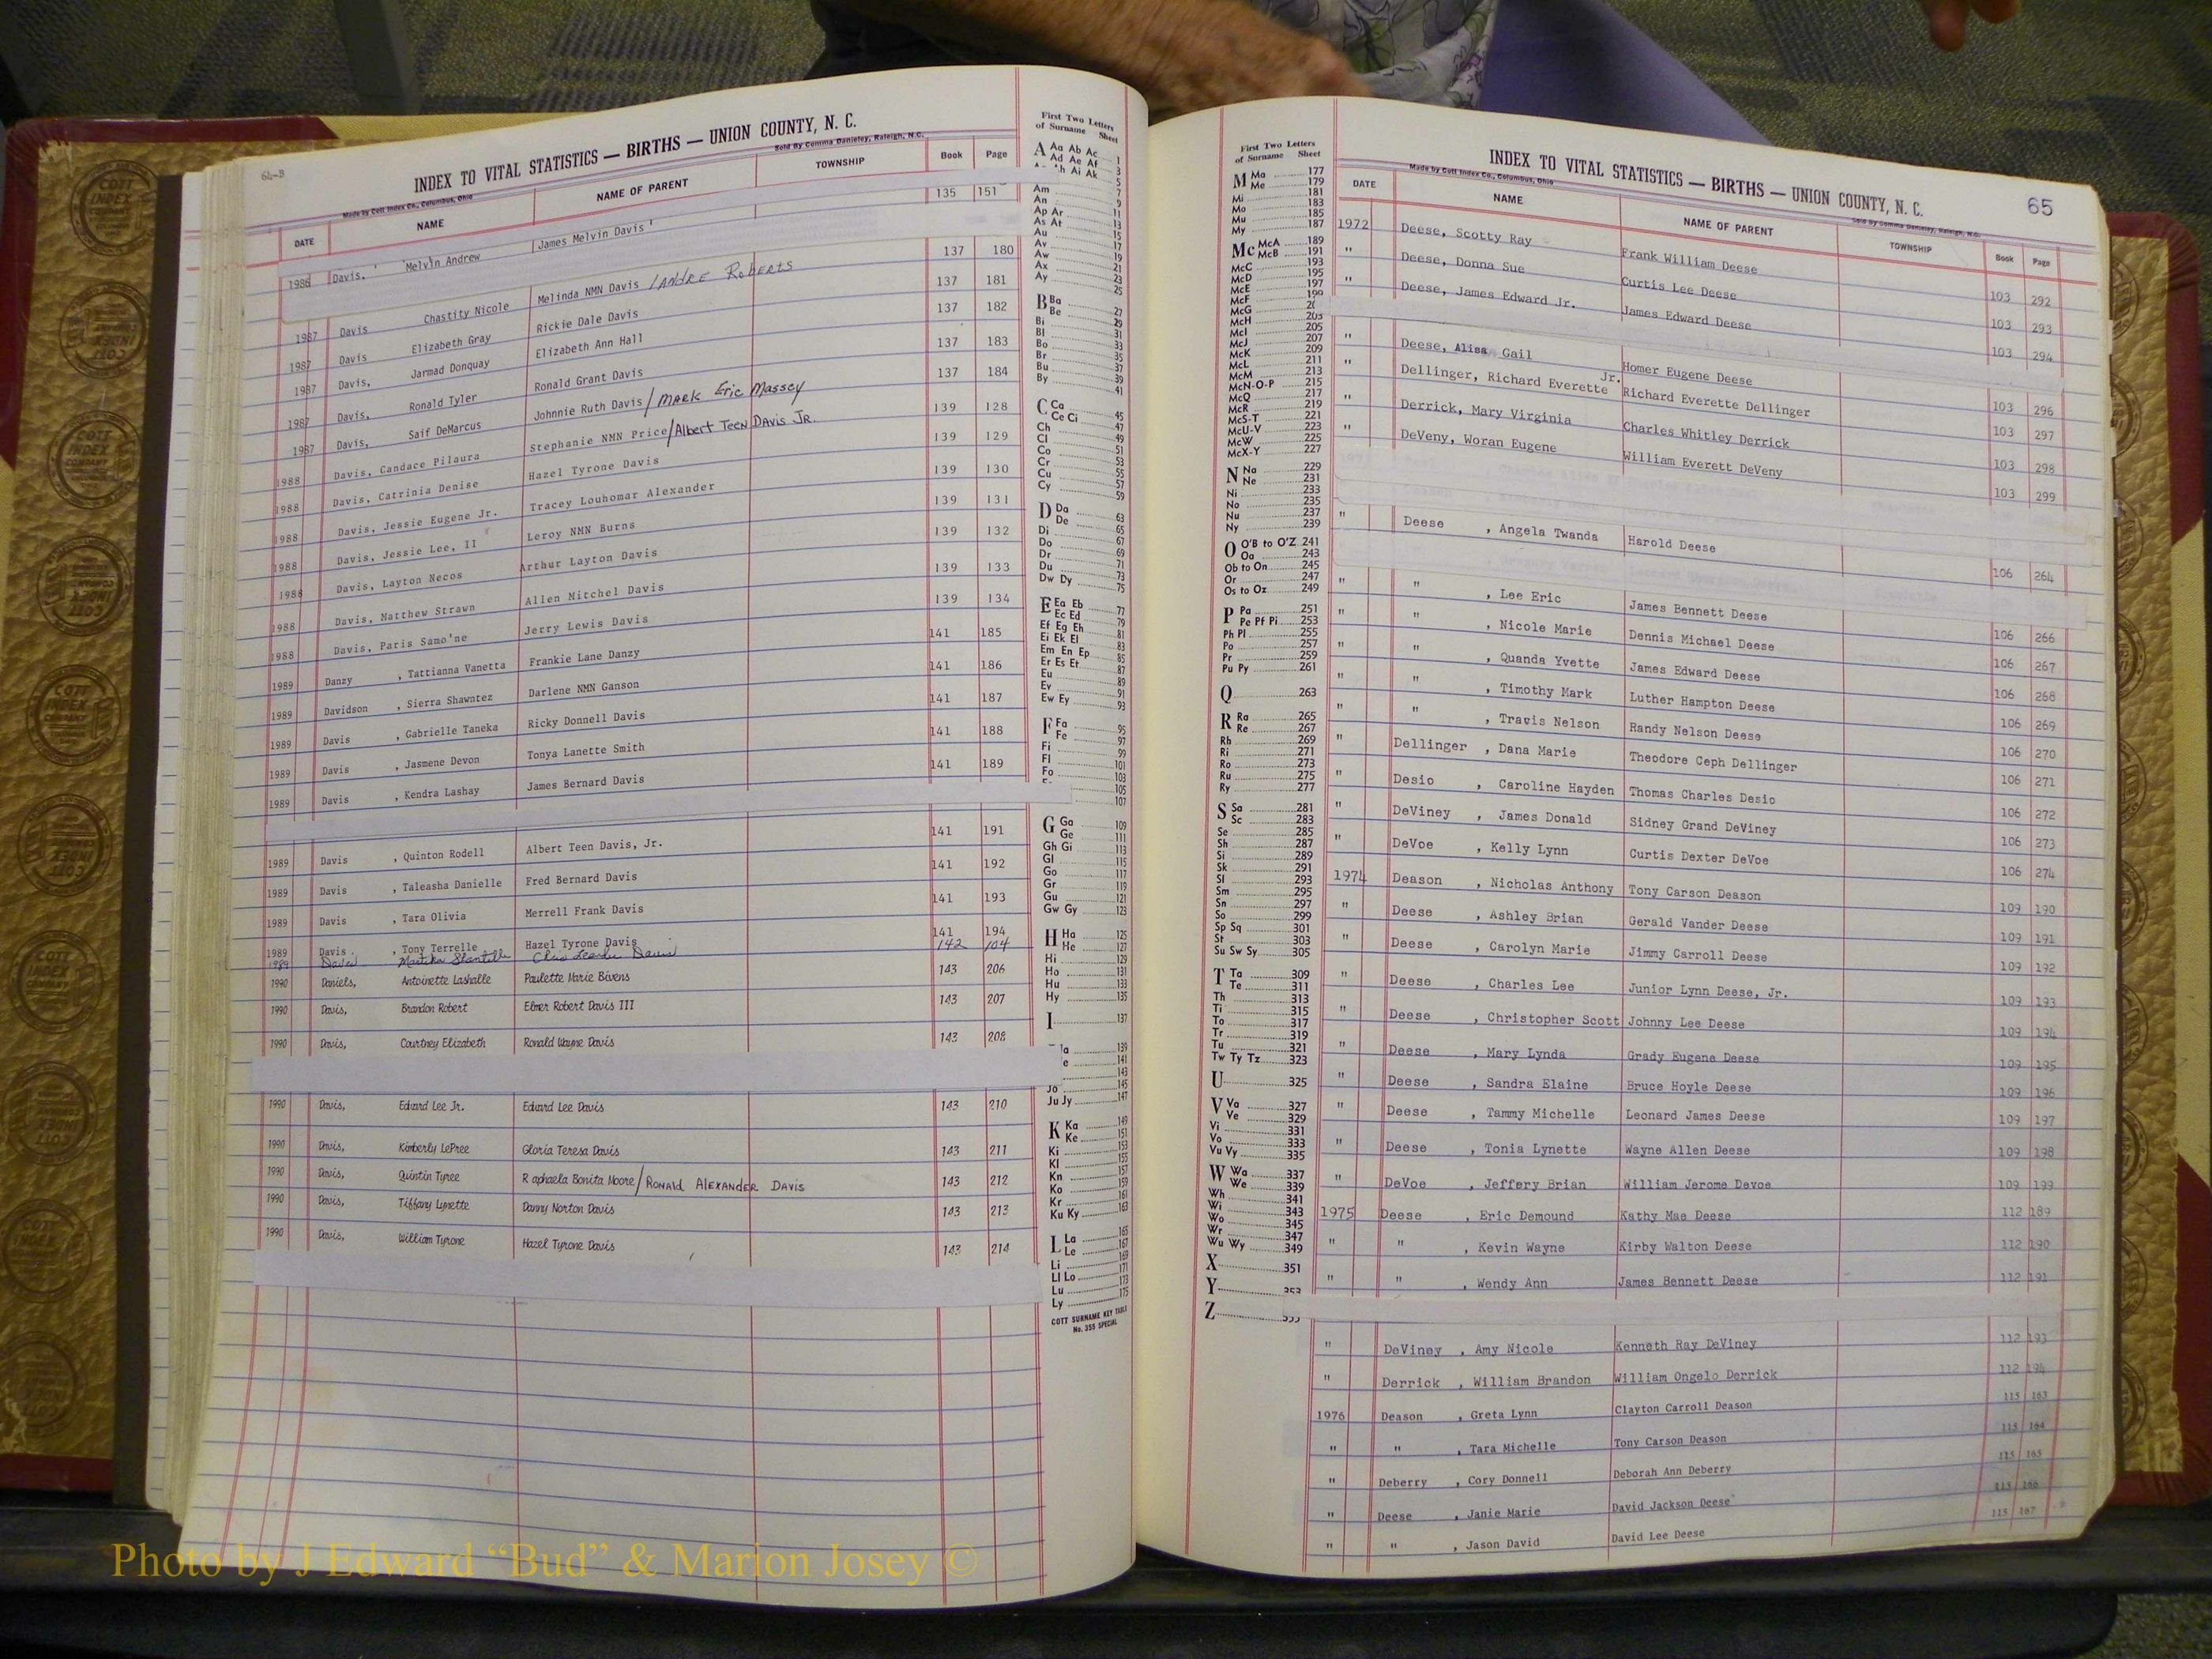 64-B
INDEX TO VITAL STATISTICS — BIRTHS — UNION COUNTY, N. C.
Made by Cott Index Co., Columbus, Ohio
Sold By Comma Danieley, Raleigh, N.C.
DATE NAME NAME OF PARENT TOWNSHIP Book Page
1986 Davis, Melvin Andrew James Melvin Davis 135 151
1987 Davis Chastity Nicole Melinda NMN Davis / ANDRE ROBERTS 137 180
1987 Davis Elizabeth Gray Rickie Dale Davis 137 181
1987 Davis, Jarmad Donquay Elizabeth Ann Hall 137 182
1987 Davis, Ronald Tyler Ronald Grant Davis 137 183
1987 Davis, Saif DeMarcus Johnnie Ruth Davis / MARK Eric Massey 137 184
1988 Davis, Candace Pilaura Stephanie NMN Price / Albert Teen Davis JR. 139 128
1988 Davis, Catrinia Denise Hazel Tyrone Davis 139 129
1988 Davis, Jessie Eugene Jr. Tracey Louhomar Alexander 139 130
1988 Davis, Jessie Lee, II Leroy NMN Burns 139 131
1988 Davis, Layton Necos Arthur Layton Davis 139 132
1988 Davis, Matthew Strawn Allen Mitchel Davis 139 133
1988 Davis, Paris Samo'ne Jerry Lewis Davis 139 134
1989 Danzy , Tattianna Vanetta Frankie Lane Danzy 141 185
1989 Davidson , Sierra Shawntez Darlene NMN Ganson 141 186
1989 Davis , Gabrielle Taneka Ricky Donnell Davis 141 187
1989 Davis , Jasmene Devon Tonya Lanette Smith 141 188
1989 Davis , Kendra Lashay James Bernard Davis 141 189
1989 Davis , Quinton Rodell Albert Teen Davis, Jr. 141 191
1989 Davis , Taleasha Danielle Fred Bernard Davis 141 192
1989 Davis , Tara Olivia Merrell Frank Davis 141 193
1989 Davis , Tony Terrelle Hazel Tyrone Davis 141 194
1989 Davis Davis 142 104
1990 Daniels, Antoinette Lashalle Paulette Marie Bivens 143 206
1990 Davis, Brandon Robert Elmer Robert Davis III 143 207
1990 Davis, Courtney Elizabeth Ronald Wayne Davis 143 208
1990 Davis, Edward Lee Jr. Edward Lee Davis 143 210
1990 Davis, Kimberly LePree Gloria Teresa Davis 143 211
1990 Davis, Quintin Tyree Raphaela Bonita Moore / RONALD ALEXANDER DAVIS 143 212
1990 Davis, Tiffany Lynette Danny Norton Davis 143 213
1990 Davis, William Tyrone Hazel Tyrone Davis 143 214
First Two Letters
of Surname Sheet
A Aa Ab Ac 1
Ad Ae Af 3
Ah Ai Ak 5
Am 7
An 9
Ap Ar 11
As At 13
Au 15
Av 17
Aw 19
Ax 21
Ay 23
25
B Ba 27
Be 29
Bi 31
Bl 33
Bo 35
Br 37
Bu 39
By 41
C Ca 45
Ce Ci 47
Ch 49
Cl 51
Co 53
Cr 55
Cu 57
Cy 59
D Da 63
De 65
Di 67
Do 69
Dr 71
Du 73
Dw Dy 75
E Ea Eb 77
Ec Ed 79
Ef Eg Eh 81
Ei Ek El 83
Em En Ep 85
Er Es Et 87
Eu 89
Ev 91
Ew Ey 93
F Fa 95
Fe 97
Fi 99
Fl 101
Fo 103
105
107
G Ga 109
Ge 111
Gh Gi 113
Gl 115
Go 117
Gr 119
Gu 121
Gw Gy 123
H Ha 125
He 127
Hi 129
Ho 131
Hu 133
Hy 135
I 137
Ja 139
e 141
143
Jo 145
Ju Jy 147
K Ka 149
Ke 151
Ki 153
Kl 155
Kn 157
Ko 159
Kr 161
Ku Ky 163
L La 165
Le 167
Li 169
Ll Lo 171
Lu 173
Ly 175
COTT SURNAME KEY TABLE
No. 355 SPECIAL
First Two Letters
of Surname Sheet
M Ma 177
Me 179
Mi 181
Mo 183
Mu 185
My 187
Mc McA 189
McB 191
McC 193
McD 195
McE 197
McF 199
McG
McH 203
McI 205
McJ 207
McK 209
McL 211
McM 213
McN-O-P 215
McQ 217
McR 219
McS-T 221
McU-V 223
McW 225
McX-Y 227
N Na 229
Ne 231
Ni 233
No 235
Nu 237
Ny 239
O O'B to O'Z 241
Oa 243
Ob to On 245
Or 247
Os to Oz 249
P Pa 251
Pe Pf Pi 253
Ph Pl 255
Po 257
Pr 259
Pu Py 261
Q 263
R Ra 265
Re 267
Rh 269
Ri 271
Ro 273
Ru 275
Ry 277
S Sa 281
Sc 283
Se 285
Sh 287
Si 289
Sk 291
Sl 293
Sm 295
Sn 297
So 299
Sp Sq 301
St 303
Su Sw Sy 305
T Ta 309
Te 311
Th 313
Ti 315
To 317
Tr 319
Tu 321
Tw Ty Tz 323
U 325
V Va 327
Ve 329
Vi 331
Vo 333
Vu Vy 335
W Wa 337
We 339
Wh 341
Wi 343
Wo 345
Wr 347
Wu Wy 349
X 351
Y 353
Z
INDEX TO VITAL STATISTICS — BIRTHS — UNION COUNTY, N. C. 65
Made by Cott Index Co., Columbus, Ohio
Sold by Comma Danieley, Raleigh, N.C.
DATE NAME NAME OF PARENT TOWNSHIP Book Page
1972 Deese, Scotty Ray Frank William Deese 103 292
" Deese, Donna Sue Curtis Lee Deese 103 293
" Deese, James Edward Jr. James Edward Deese 103 294
" Deese, Alisa Gail Homer Eugene Deese 103 296
" Dellinger, Richard Everette Jr. Richard Everette Dellinger 103 297
" Derrick, Mary Virginia Charles Whitley Derrick 103 298
" DeVeny, Woran Eugene William Everett DeVeny 103 299
" Deese , Angela Twanda Harold Deese 106 264
" " , Lee Eric James Bennett Deese 106 266
" " , Nicole Marie Dennis Michael Deese 106 267
" " , Quanda Yvette James Edward Deese 106 268
" " , Timothy Mark Luther Hampton Deese 106 269
" " , Travis Nelson Randy Nelson Deese 106 270
" Dellinger , Dana Marie Theodore Ceph Dellinger 106 271
" Desio , Caroline Hayden Thomas Charles Desio 106 272
" DeViney , James Donald Sidney Grand DeViney 106 273
" DeVoe , Kelly Lynn Curtis Dexter DeVoe 106 274
1974 Deason , Nicholas Anthony Tony Carson Deason 109 190
" Deese , Ashley Brian Gerald Vander Deese 109 191
" Deese , Carolyn Marie Jimmy Carroll Deese 109 192
" Deese , Charles Lee Junior Lynn Deese, Jr. 109 193
" Deese , Christopher Scott Johnny Lee Deese 109 194
" Deese , Mary Lynda Grady Eugene Deese 109 195
" Deese , Sandra Elaine Bruce Hoyle Deese 109 196
" Deese , Tammy Michelle Leonard James Deese 109 197
" Deese , Tonia Lynette Wayne Allen Deese 109 198
" DeVoe , Jeffery Brian William Jerome Devoe 109 199
1975 Deese , Eric Demound Kathy Mae Deese 112 189
" " , Kevin Wayne Kirby Walton Deese 112 190
" " , Wendy Ann James Bennett Deese 112 191
" DeViney , Amy Nicole Kenneth Ray DeViney 112 193
" Derrick , William Brandon William Ongelo Derrick 112 194
1976 Deason , Greta Lynn Clayton Carroll Deason 115 163
" " , Tara Michelle Tony Carson Deason 115 164
" Deberry , Cory Donnell Deborah Ann Deberry 115 165
" Deese , Janie Marie David Jackson Deese 115 166
" " , Jason David David Lee Deese 115 167
Photo by J Edward “Bud” & Marion Josey ©